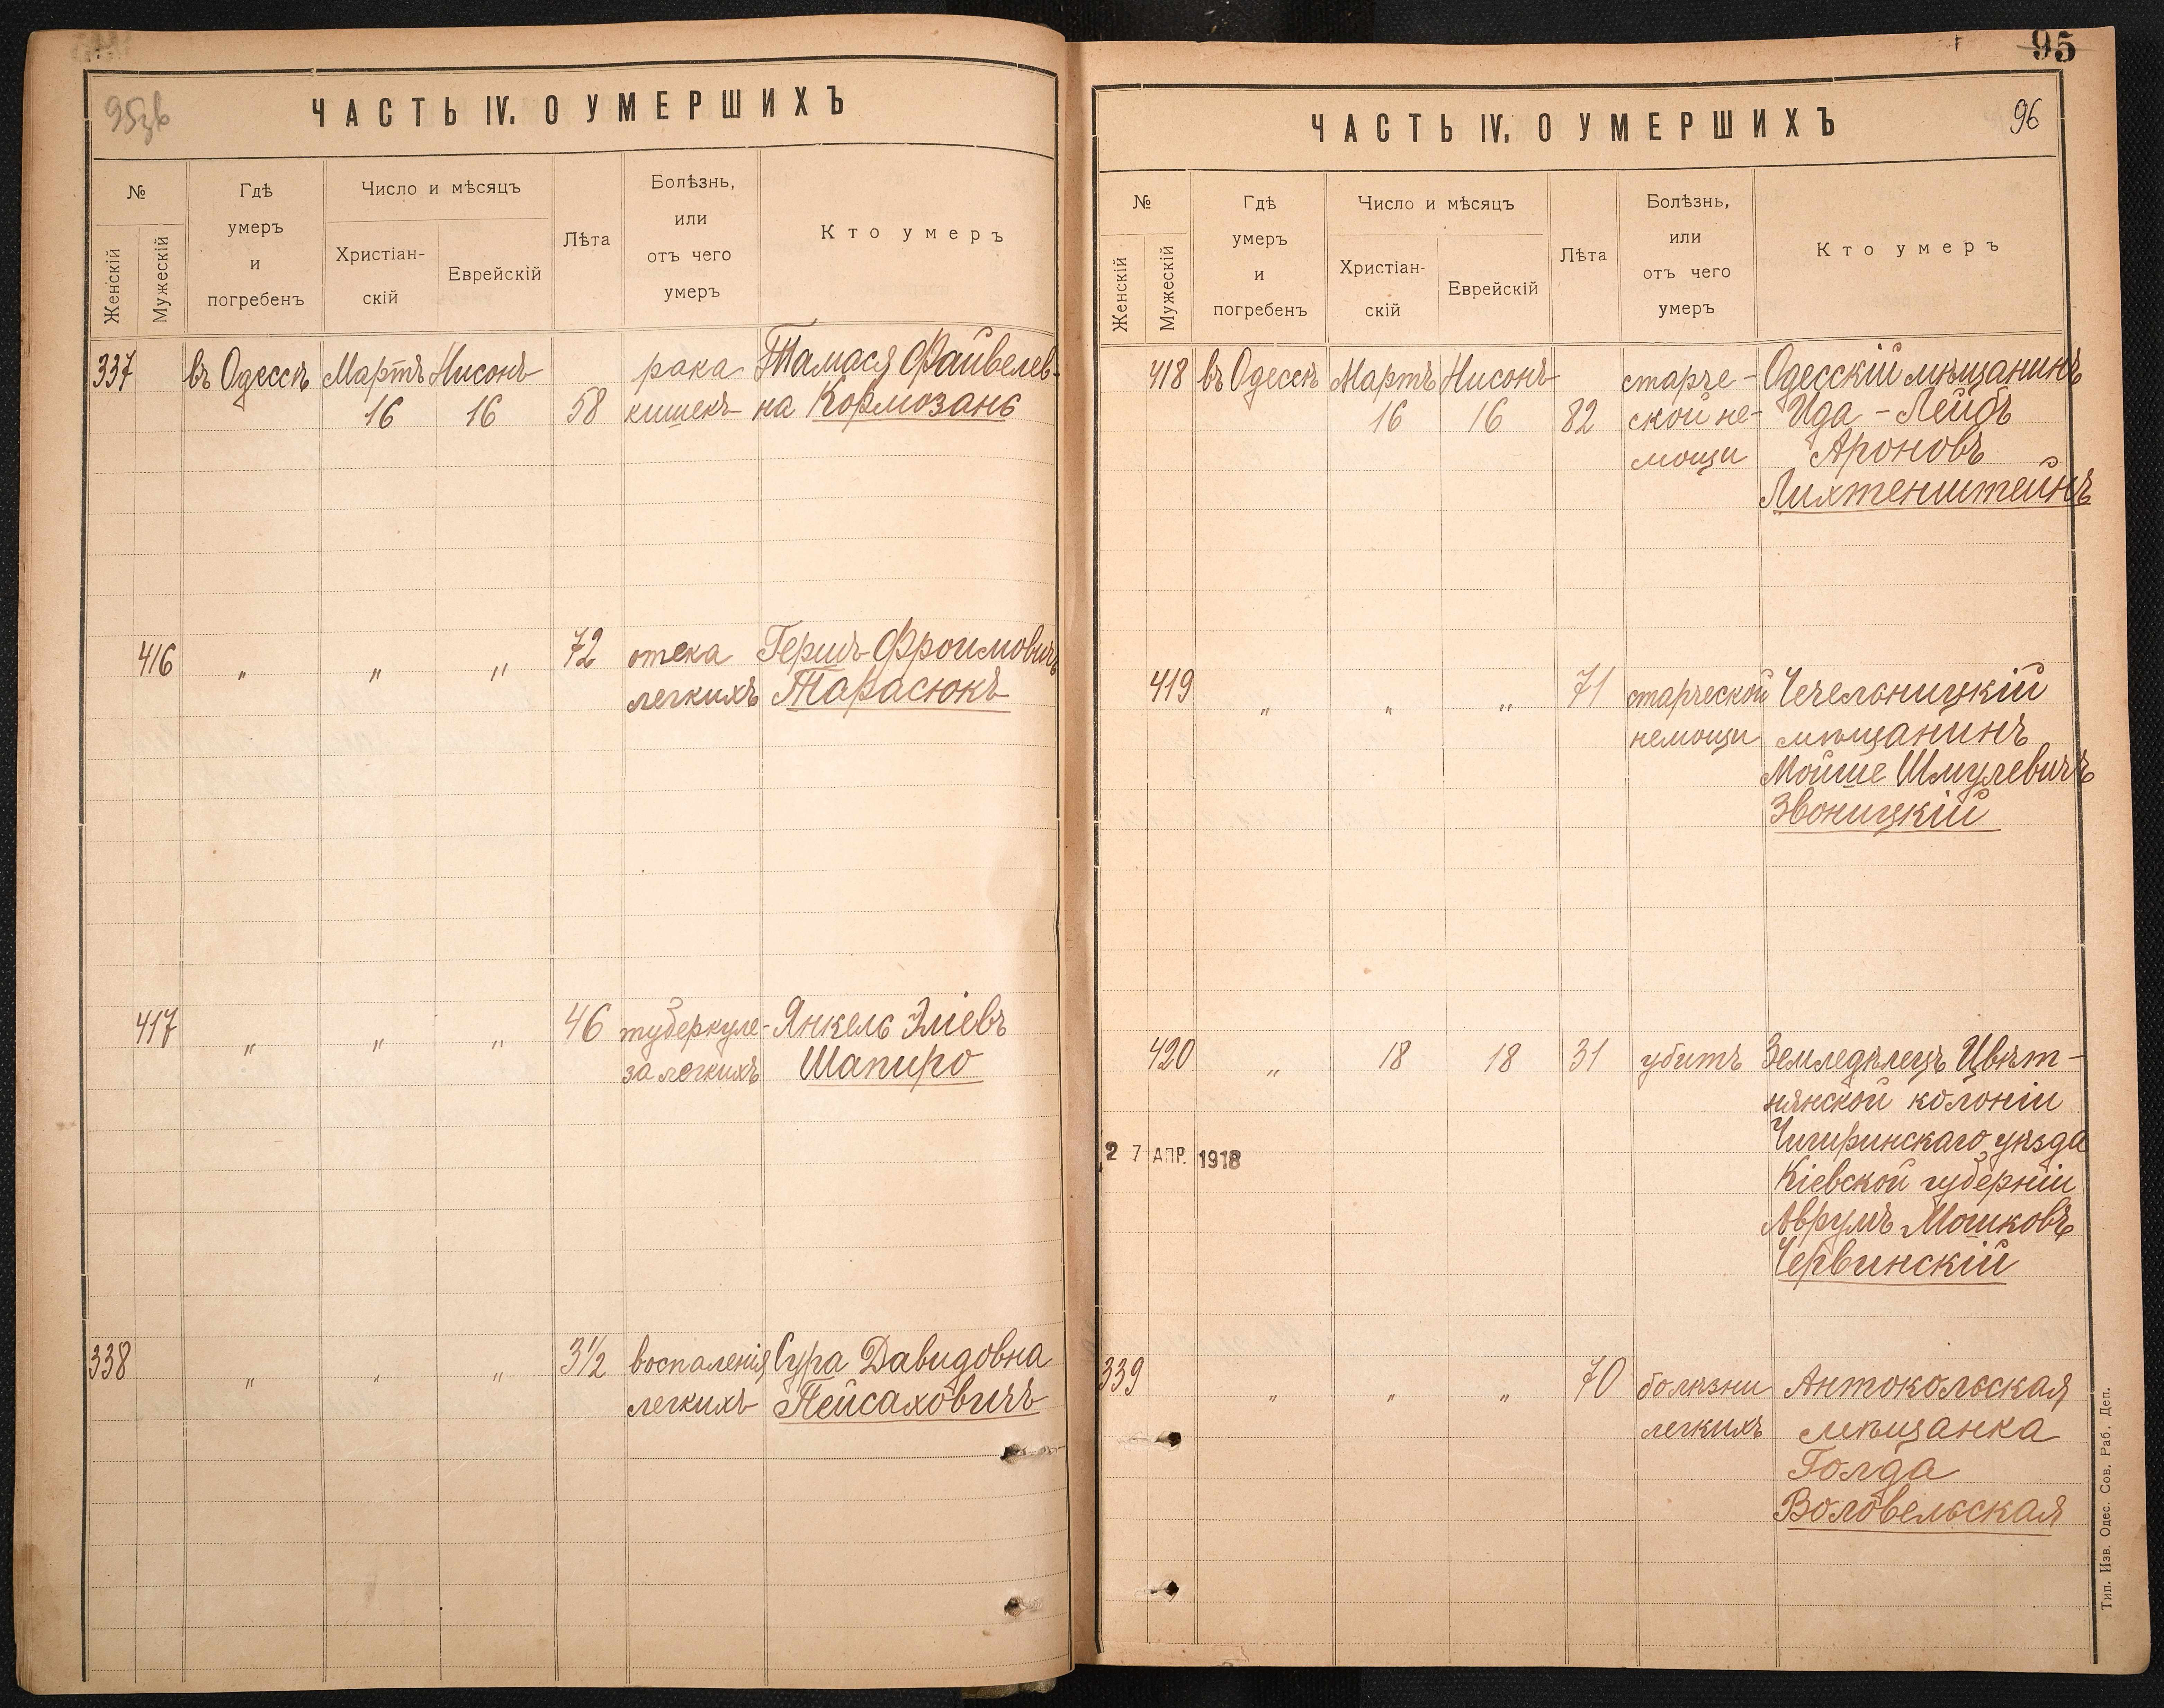 95зв
ЧАСТЬ IV. О УМЕРШИХЪ
№
Женскій
Мужескій
Гдѣ
умеръ
и
погребенъ
Число и мѣсяцъ
Христіан-
скій
Еврейскій
Лѣта
Болѣзнь,
или
отъ чего
умеръ
Кто умеръ
337 въ Одессѣ Мартъ Нисонъ рака Тамася Файвелев-
16 16 58 кишекъ на Кормозань
416 " " " 72 отека Гершъ Фроимовичъ
легкихъ Тарасюкъ
417 " " " 46 туберкуле- Янкель Эліевъ
за легкихъ Шапиро
338 " " " 3½ воспаленія Сура Давидовна
легкихъ Пейсаховичъ
95
96
ЧАСТЬ IV. О УМЕРШИХЪ
№
Женскій
Мужескій
Гдѣ
умеръ
и
погребенъ
Число и мѣсяцъ
Христіан-
скій
Еврейскій
Лѣта
Болѣзнь,
или
отъ чего
умеръ
Кто умеръ
418 въ Одессѣ Мартъ Нисонъ старче- Одесскій мѣщанинъ
16 16 82 ской не- Ида-Лейбъ
мощи Ароновъ
Лихтенштейнъ
419 " " " 71 старческой Чечельницкій
немощи мѣщанинъ
Мойше Шмулевичъ
Звоницкій
420 " 18 18 31 убитъ Земледѣлецъ Цвѣт-
нянской колоніи
Чигиринскаго уѣзда
2 7 АПР. 1918
Кіевской губерніи
Аврумъ Мошковъ
Червинскій
339 " " " 70 болѣзни Антокольская
легкихъ мѣщанка
Голда
Воловельская
Тип. Изв. Одес. Сов. Раб. Деп.